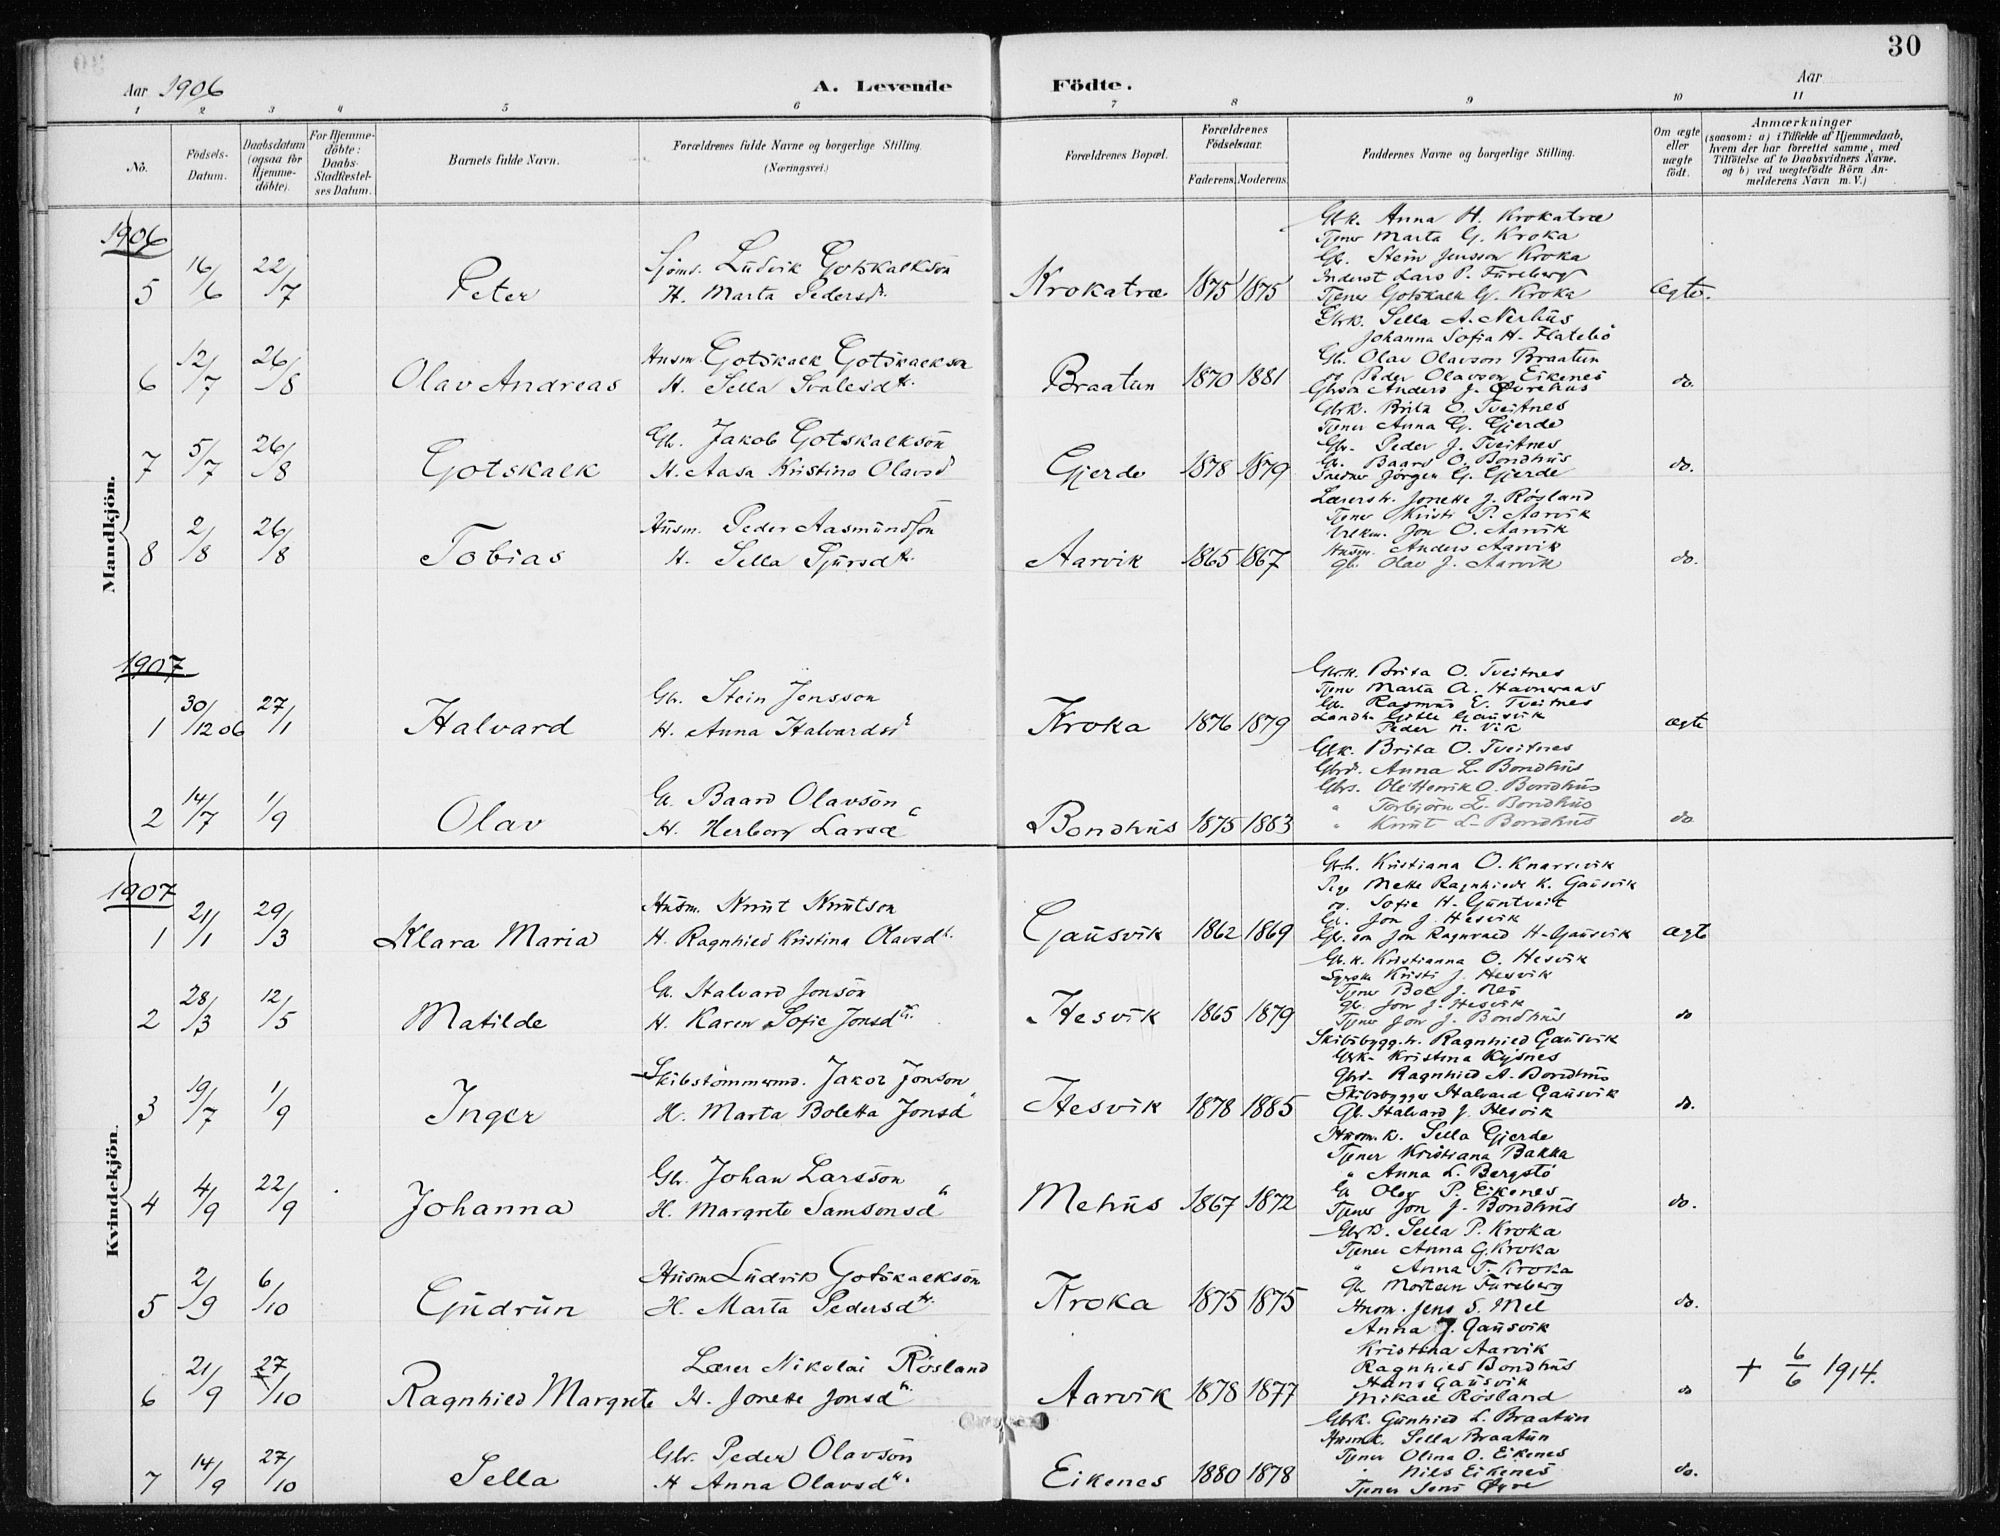 30
Aar 1906
A. Levende Födte.
Aar
1 2 3 4 5 6 7 8 9 10 11
No.
Födsels-Datum.
Daabsdatum (ogsaa for Hjemme-döbte).
For Hjemme-döbte: Daabs-Stadfæstel-ses Datum.
Barnets fulde Navn.
Forældrenes fulde Navne og borgerlige Stilling. (Næringsvei.)
Forældrenes Bopæl.
Forældrenes Födselsaar. Faderens. Moderens.
Faddernes Navne og borgerlige Stilling.
Om ægte eller uægte födt.
Anmærkninger (saasom: a) i Tilfælde af Hjemmedaab, hvem der har forrettet samme, med Tilföielse af to Daabsvidners Navne. og b) ved uægtefödte Börn An-melderens Navn m. V.)
Mandkjön.
1906
5 16/6 22/7 Peter
Sjöm. Ludvik Gotskalkson
H. Marta Pedersdtr.
Krokatræ 1875 1875 Ægte.
Gbk. Anna H. Krokatræ
Tjener Marta G. Kroka
Gb. Stein Jensson Kroka
Lars P. Fureberg
Tjener Gotskalk G. Kroka
6 12/7 26/8 Olav Andreas
Husm. Gotskalk Gotskalkson
H. Sella Svalesdtr.
Braatun 1870 1881 do.
Gbrk. Sella A. Nerhus
Johanna Sofia H. Flatebö
Gb. Olav Olavson Braatun
og Peder Olavson Eikenes
Gbrson Anders J.
7 5/7 26/8 Gotskalk
Gb. Jakob Gotskalkson
H. Aasa Kristina Olavsd
Gjerde 1878 1879 do.
Gbrk. Brita O. Tveitnes
Tjener Anna G. Gjerde
Gbr. Peder J. Tveitnes
G. Baard O. Bondhus
Jørgen G. Gjerde
8 2/8 26/8 Tobias
Husm. Peder Aasmundson
H. Sella Sjursdtr.
Aarvik 1865 1867 do.
Lærersk. Jonette J. Røsland
Tjener Kristi P. Aarvik
Jon O. Aarvik
Husm. Anders Aarvik
Gb. Olav J. Aarvik
1907
1 30/12 06 27/1 Halvard
Gbr. Stein Jensson
H. Anna Halvardsd
Kroka 1876 1879 ægte
Gbrk. Brita O. Tveitnes
Tjener Marta A. Havneraas
Gb. Rasmus E. Tveitnes
Landh. Gitle Gausvik
Peder N. Vik
2 14/7 1/9 Olav
G. Baard Olavson
H. Herborg Larsd
Bondhus 1875 1883 do
Gbk. Brita O. Tveitnes
Gbrd. Anna L. Bondhus
Gbrs. Ole Henrik O. Bondhus
" Torbjörn L. Bondhus
" Knut L. Bondhus
Kvindekjön.
1907
1 21/1 29/3 Klara Maria
Husm. Knut Knutson
H. Ragnhild Kristina Olavsdtr.
Gausvik 1862 1869 Ægte
Gb.h. Kristiana O. Knarrevik
Pige Mette Ragnhild K. Gausvik
og Sofie H. Guntveit
Gb. Jon J. Hesvik
Gb. søn Jon Ragnvald H. Gausvik
2 28/3 12/5 Matilde
G. Halvard Jonson
H. Karen Sofie Jonsdtr.
Hesvik 1865 1879 do
Gb. k. Kristianna O. Hesvik
Kristi J. Hesvik
Tjener Boe J. Nes
Gb. Jon J. Hesvik
Tjener Jon J. Bondhus
3 19/7 1/9 Inger
Skibstömmermd. Jakob Jonson
H. Marta Boletta Jonsd
Hesvik 1878 1885 do.
Skibsbygg. h. Ragnhild Gausvik
Gbk. Kristina Kysnes
Gbrd. Ragnhild A. Bondhus
Skibsbygger Halvard Gausvik
Gb. Halvard J. Hesvik
4 4/9 22/9 Johanna
Gb. Johan Larsson
H. Margrete Samsonsd
Mehus 1867 1872 do.
Husm. k. Sella Gjerde
Tjener Kristiana Bakka
" Anna L. Bergstö
G. Olav P. Eikenes
Tjener Jon J. Bondhus
5 2/9 6/10 Gudrun
Husm Ludvik Gotskalkson
H. Marta Pedersdtr.
Kroka 1875 1875 do.
Gbrk. Sella P. Kroka
Tjener Anna G. Kroka
" Anna T. Kroka
Gb. Morten Fureberg
Husm. Jens S. Mel
6 21/9 27/10 Ragnhild Margrete
Lærer Nikolai Røsland
H. Jonette Jonsdtr.
Aarvik 1878 1877 do
Anna J. Gausvik
Kristina Aarvik
Ragnhild Bondhus
Hans Gausvik
Mikael Røsland
+ 6/6 1914.
7 14/9 27/10 Sella
Gbr. Peder Olavson
H Anna Olavsdtr.
Eikenes 1880 1878 do.
Gbrk. Gunhild L. Braatun
Husmk. Sella Braatun
Tjener Olina O. Eikenes
" Nils Eikenes
Tjener Jens Øyre